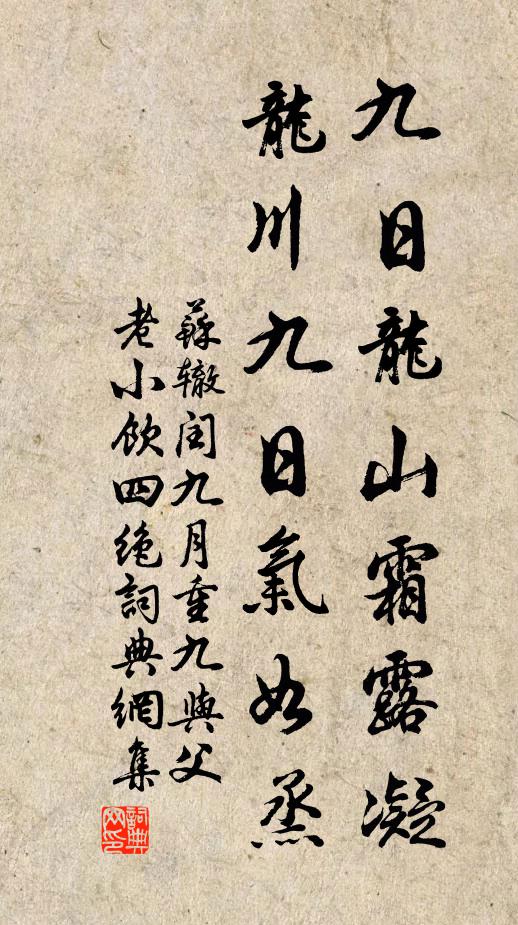 九日龍山霜露凝
龍川九日氣如蒸
蘇辙闰九月重九與父
老小飲四絶詞典網集
詞典网印